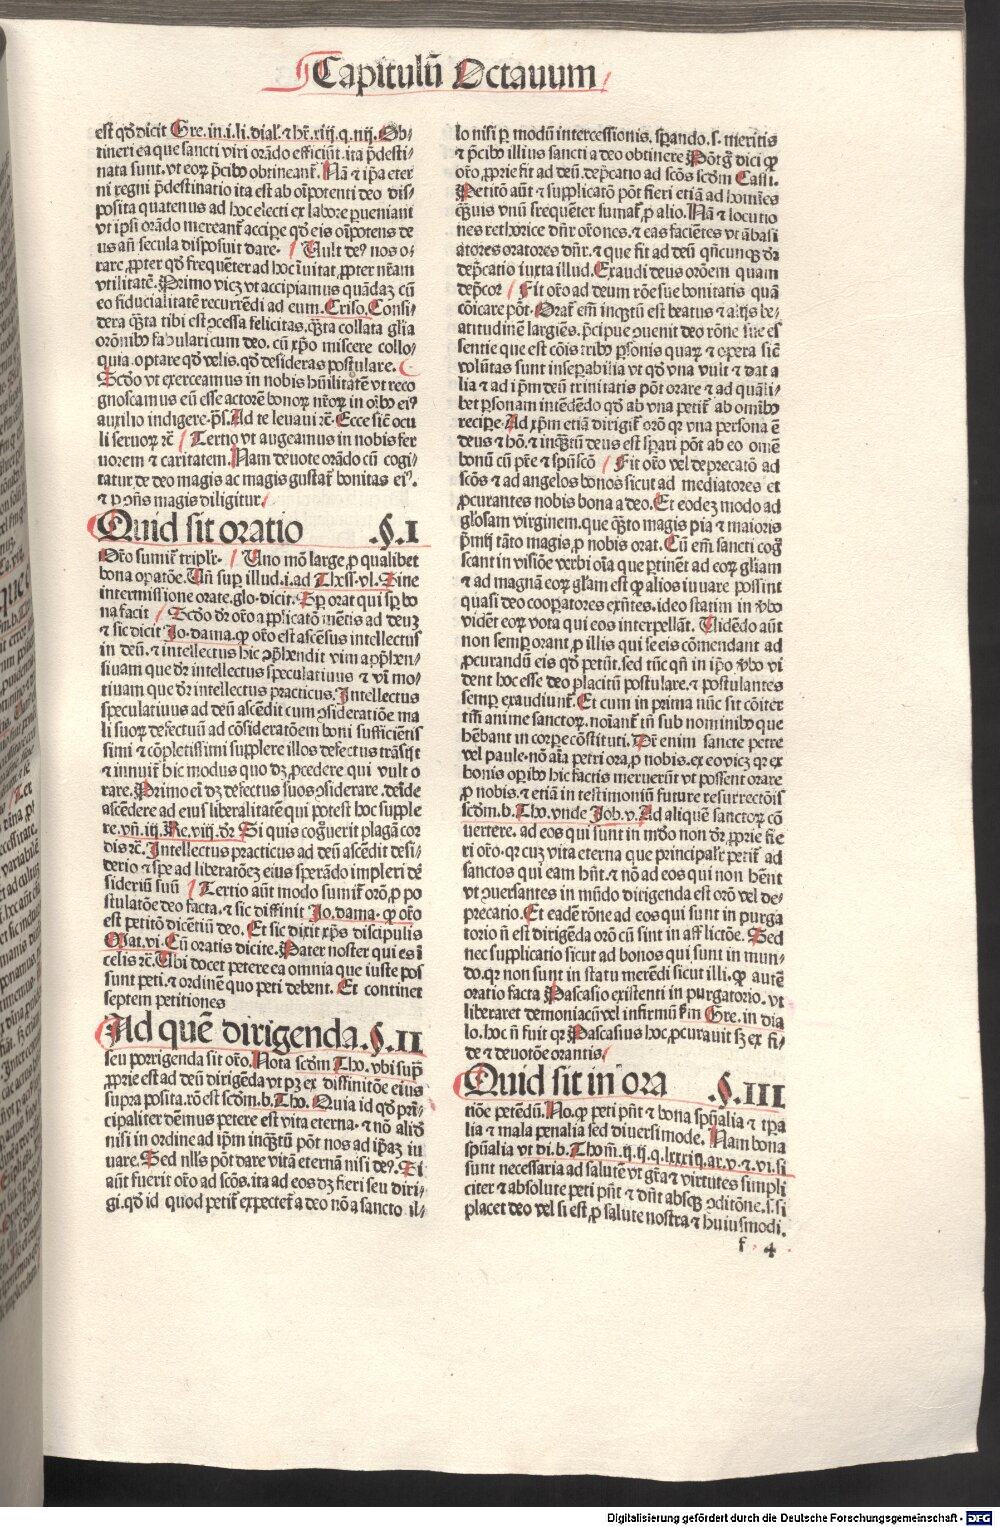 Capitulū Octauum
est qd̄ dicit Gre. in .i. li. dial. ⁊ hr̄. xiij. q. iiij. Ob-
tineri ea que sancti viri orādo efficiūt. ita p̄desti-
nata sunt. vt eoꝝ p̄cibꝰ obtineant᷑. Nā ⁊ ip̄a eter
ni regni p̄destinatio ita est ab oīpotenti deo dis-
posita quatenus ad hoc electi ex labore ꝑueniant
vt ipsi orādo mereant᷑ accipe qd̄ eis oīpotens de
us añ secula disposuit dare. Uult deꝰ nos o-
rare ꝓpter qd̄ frequēter ad hoc īuitat ꝓpter nr̄am
vtilitatē. Primo vicꝫ vt accipiamus quādaꝫ cū
eo fiducialitatē recurrēdi ad eum. Criso. Consi-
dera quāta tibi est ꝯcessa felicitas. quāta collata gl̄ia
orōnibꝰ fabulari cum deo. cū xp̄o miscere collo-
quia. optare qd̄ velis. qd̄ desideras postulare.
Scd̄o vt exerceamus in nobis hūilitatē vt reco
gnoscamus eū esse actorē bonoꝝ nr̄oꝝ in oībꝰ eiꝰ
auxilio indigere. p̄s. Ad te leuaui rc̄. Ecce sic̄ ocu
li seruoꝝ rc̄ Tertio vt augeamus in nobis fer
uorem ⁊ caritatem. Nam deuote orādo cū cogi-
tatur de deo magis ac magis gustat᷑ bonitas eiꝰ.
⁊ ꝑ ꝯñs magis diligitur.
Quid sit oratio .§.I
Orō sumit᷑ triplr̄. Uno mō large. ꝓ qualibet
bona oꝑatōe. Uñ suꝑ illud .i. ad Thess. vl. Sine
intermissione orate. glo. dicit. Sꝑ orat qui sꝑ bo
na facit Scd̄o dr̄ orō applicatō mētis ad deuꝫ
⁊ sic dicit Io. dama. ꝙ orō est ascēsus intellectus
in deū. ⁊ intellectus hic ꝯp̄hendit vim app̄hen-
siuam que dr̄ intellectus speculatiuus ⁊ vī mo-
tiuam que dr̄ intellectus practicus. Intellectus
speculatiuus ad deū ascēdit cum ꝯsideratiōe ma
li suoꝝ defectuū ad cōsideratōem boni sufficiētis
simi ⁊ cōpletissimi supplere illos defectus trāsit
⁊ innuit᷑ hic modus quo dꝫ ꝓcedere qui vult o
rare. Primo ei dꝫ defectus suos ꝯsiderare. deīde
ascēdere ad eius liberalitatē qui potest hoc supple
re. vñ. iij. Re. viij. dr̄ Si quis cogꝰuerit plagā cor
dis rc̄. Intellectus practicus ad deū ascēdit desi-
derio ⁊ spe ad liberatōeꝫ eius sperādo impleri de
sideriū suū Tertio aūt modo sumit᷑ orō. ꝓ po
stulatōe deo facta. ⁊ sic diffinit Io. dama. ꝙ orō
est petitō dicētiū deo. Et sic dicit xp̄s discipulis
Mat. vi. Cū oratis dicite. Pater noster qui es ī
celis rc̄. Ubi docet petere ea omnia que iuste pos
sunt peti. ⁊ ordinē quo peti debent. Et continet
septem petitiones
Ad quē dirigenda .§.II
seu porrigenda sit orō. Nota scd̄m Tho. vbi supͣ
ꝓprie est ad deū dirigēda vt pꝫ ex diffinitōe eius
supra posita. rō est scd̄m .b. Tho. Quia id qd̄ prī-
cipaliter dēmus petere est vita eterna. ⁊ nō aliqd̄
nisi in ordine ad ip̄m inqꝫtū pōt nos ad ip̄aꝫ iu
uare. Sed nllꝰs pōt dare vitā eternā nisi deꝰ. Si
aūt fuerit orō ad scōs. ita ad eos dꝫ fieri seu diri-
gi. qd̄ id quod petit᷑ expectet᷑ a deo nō a sancto il-
lo nisi ꝑ modū intercessionis. sꝑando .s. meritis
⁊ p̄cibꝰ illius sancti a deo obtinere Pōt g̊ dici ꝙ
orō ꝓprie fit ad deū. dep̄catio ad scōs scd̄m Cassi.
Petitō aūt ⁊ supplicatō pōt fieri etiā ad homīes
qꝫuis vnū frequēter sumat᷑ ꝓ alio. Nā ⁊ locutio
nes rethorice dn̄r orōnes. ⁊ eas faciētes vt ābasi
atores oratores dn̄r. ⁊ que fit ad deū qn̄cunqꝫ dr̄
dep̄catio iuxta illud. Exaudi deus orōem quam
dep̄cor Fit orō ad deum rōe sue bonitatis quā
cōicare pōt. Orat᷑ em̄ inqꝫtū est beatus ⁊ alijs be-
atitudinē largiēs. p̄cipue ꝯuenit deo rōne sue es
sentie que est cōis tribꝰ ꝑsonis quaꝝ ⁊ opera sic̄
volūtas sunt inseꝑabilia vt qd̄ vna vult ⁊ dat a
lia ⁊ ad ip̄m deū trinitatis pōt orare ⁊ ad quāli-
bet ꝑsonam intēdēdo qd̄ ab vna petit᷑ ab omībꝰ
recipe. Ad xp̄m etiā dirigit᷑ orō qꝛ vna persona ē
deus ⁊ hō. ⁊ inqꝫtū deus est sꝑari pōt ab eo omē
bonū cū pr̄e ⁊ spūscō Fit orō vel deprecatō ad
scōs ⁊ ad angelos bonos sicut ad mediatores et
ꝓcurantes nobis bona a deo. Et eodeꝫ modo ad
gl̄osam virginem. que qꝫto magis pia ⁊ maioris
p̄mij tāto magis ꝓ nobis orat. Cū em̄ sancti cog̊
scant in visiōe verbi oīa que ꝑtinēt ad eoꝝ gl̄iam
⁊ ad magnā eoꝝ gl̄am est ꝙ alios iuuare possint
quasi deo cooꝑatores exn̄tes. ideo statim in v̄bo
vidēt eoꝝ vota qui eos interpellāt. Uidēdo aūt
non semꝑ orant ꝓ illis qui se eis cōmendant ad
ꝓcurandū eis qd̄ petūt. sed tūc qñ in ip̄o v̄bo vi
dent hoc esse deo placitū postulare. ⁊ postulantes
semꝑ exaudiunt᷑. Et cum in prima nūc sit cōiter
tm̄ anime sanctoꝝ. noīant᷑ tn̄ sub nominibꝰ que
hēbant in corꝑe cōstituti. Dr̄ enim sancte petre
vel paule. nō aīa petri ora ꝓ nobis. ex eo vicꝫ qꝛ ex
bonis oꝑibꝰ hic factis meruerūt vt possent orare
ꝓ nobis. ⁊ etiā in testimoniū future resurrectōis
scd̄m .b. Tho. vnde Iob. v. Ad aliquē sanctoꝝ cō
uertere. ad eos qui sunt in mūdo non dr̄ ꝓprie fie
ri orō. qꝛ cuꝫ vita eterna que principalr̄ petit᷑ ad
sanctos qui eam hn̄t. ⁊ nō ad eos qui non hēnt
vt ꝯuersantes in mūdo dirigenda est orō vel de-
precatio. Et eadē rōne ad eos qui sunt in purga
torio n̄ est dirigēda orō cū sint in afflictōe. Sed
nec supplicatio sicut ad bonos qui sunt in mun-
do. qꝛ non sunt in statu merēdi sicut illi. ꝙ autē
oratio facta Pascasio existenti in purgatorio. vt
liberaret demoniacū vel infirmū km̄ Gre. in dia
lo. hoc n̄ fuit qꝛ Pascasius hoc ꝓcurauit sꝫ ex fi-
de ⁊ deuotōe orantis
Quid sit in ora .§.III
tiōe petēdū. No. ꝙ peti pn̄t ⁊ bona spūalia ⁊ tꝑa
lia ⁊ mala penalia sed diuersimode. Nam bona
spūalia vt di. b. Thom̄. ij. ij. q. lxxxiij. ar. v. ⁊ .vi. si
sunt necessaria ad salutē vt gr̄a ⁊ virtutes simpli
citer ⁊ absolute peti pn̄t ⁊ dn̄t absqꝫ ꝯditōne .s. si
placet deo vel si est ꝓ salute nostra ⁊ huiusmodi.
f 4
Digitalisierung gefördert durch die Deutsche Forschungsgemeinschaft - DFG